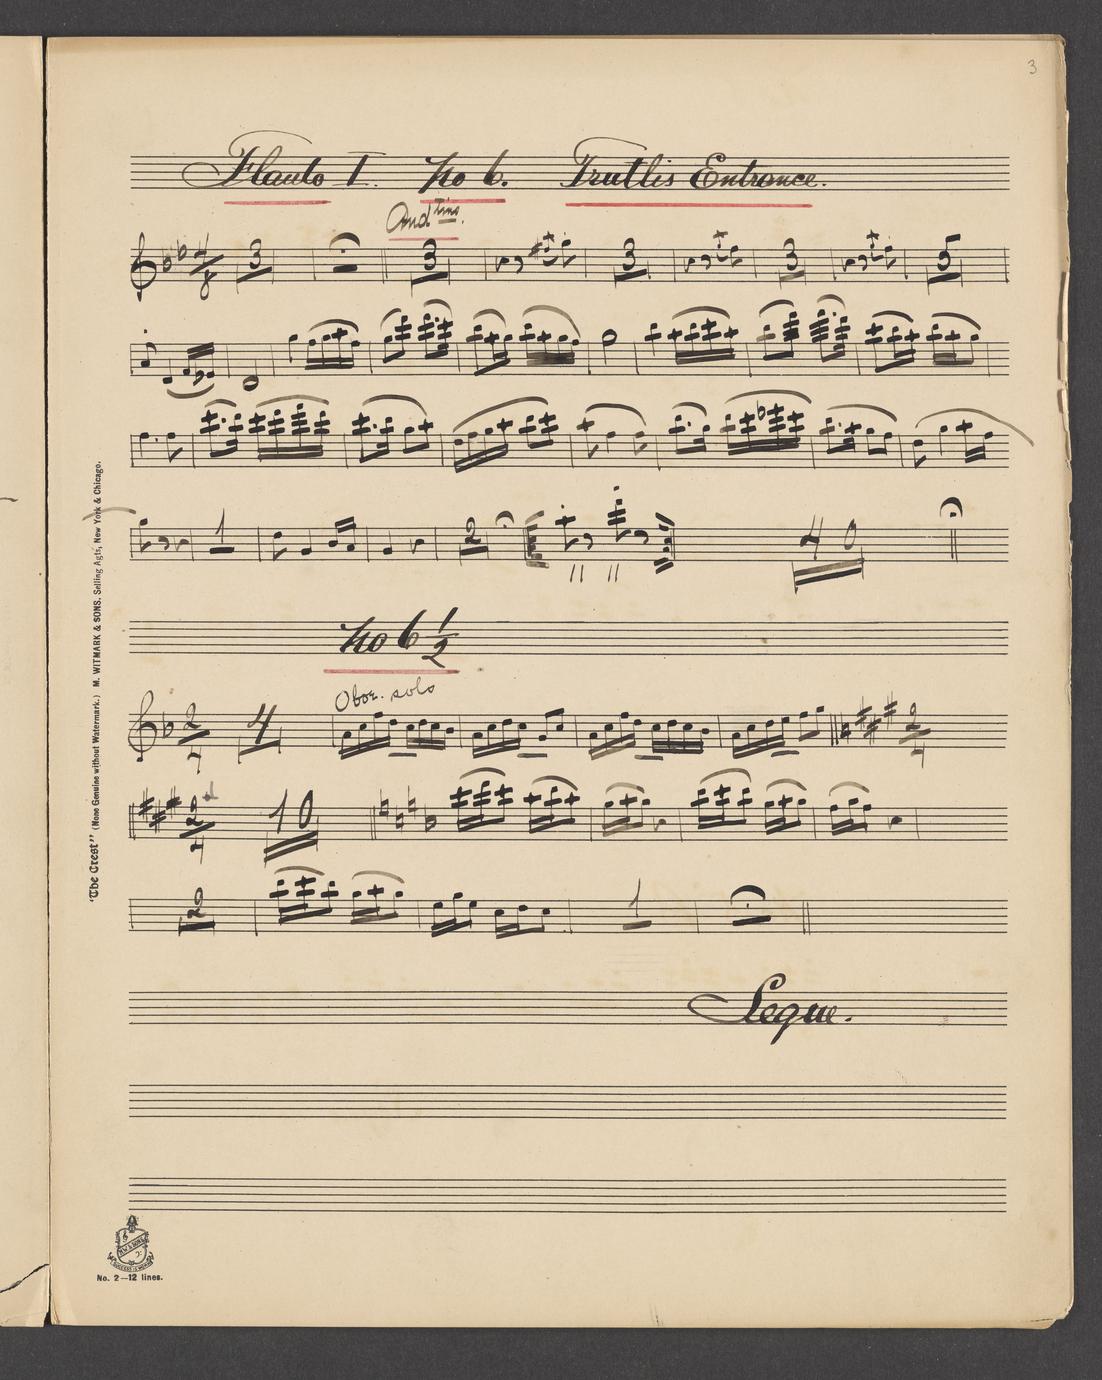 3
Flauto I. No 6. Trutlis Entrance.
Andtino.
3 3 3 3 5
1 2 40
No 6 1/2
Oboe. solo
2/4 4 2/4
2/4 10
2 1
Segue.
"The Crest" (None Genuine without Watermark.) M. WITMARK & SONS. Selling Agts, New York & Chicago.
No. 2—12 lines.